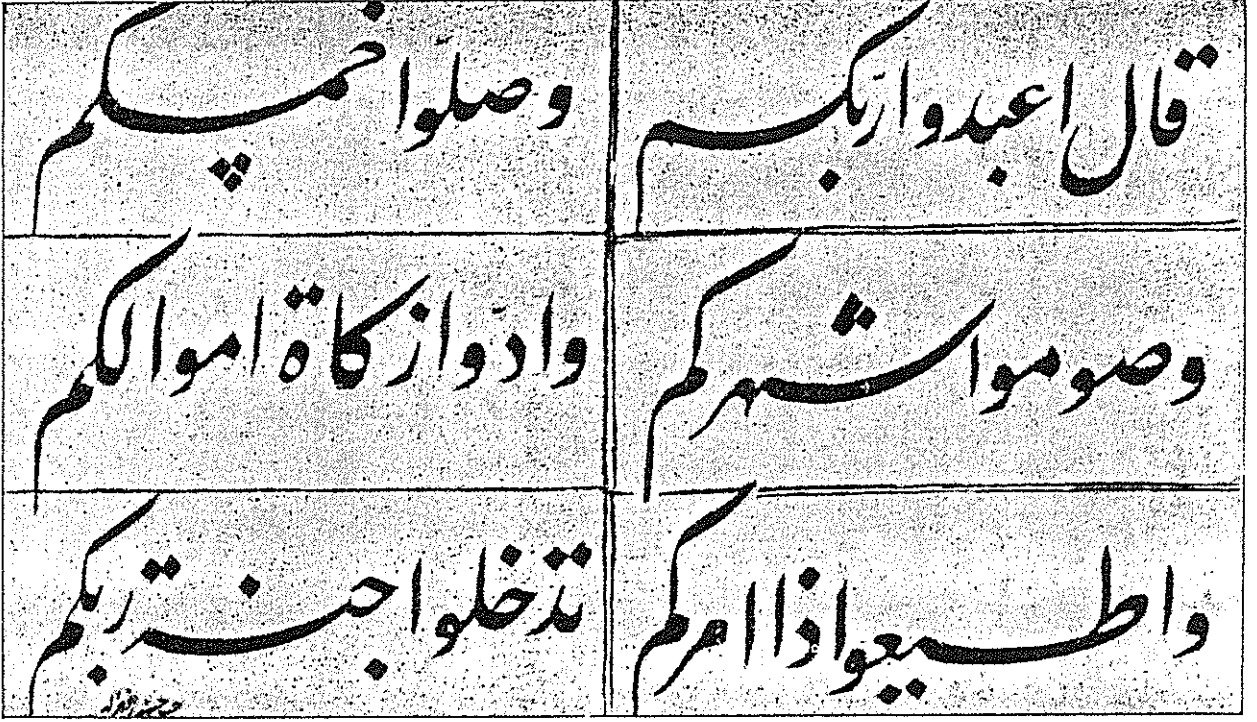 قال اعبدوا ربّكم
وصلّوا خمسكم
وصوموا شهركم
وادّوا زكاة اموالكم
واطيعوا ذا امركم
تدخلوا جنة ربكم